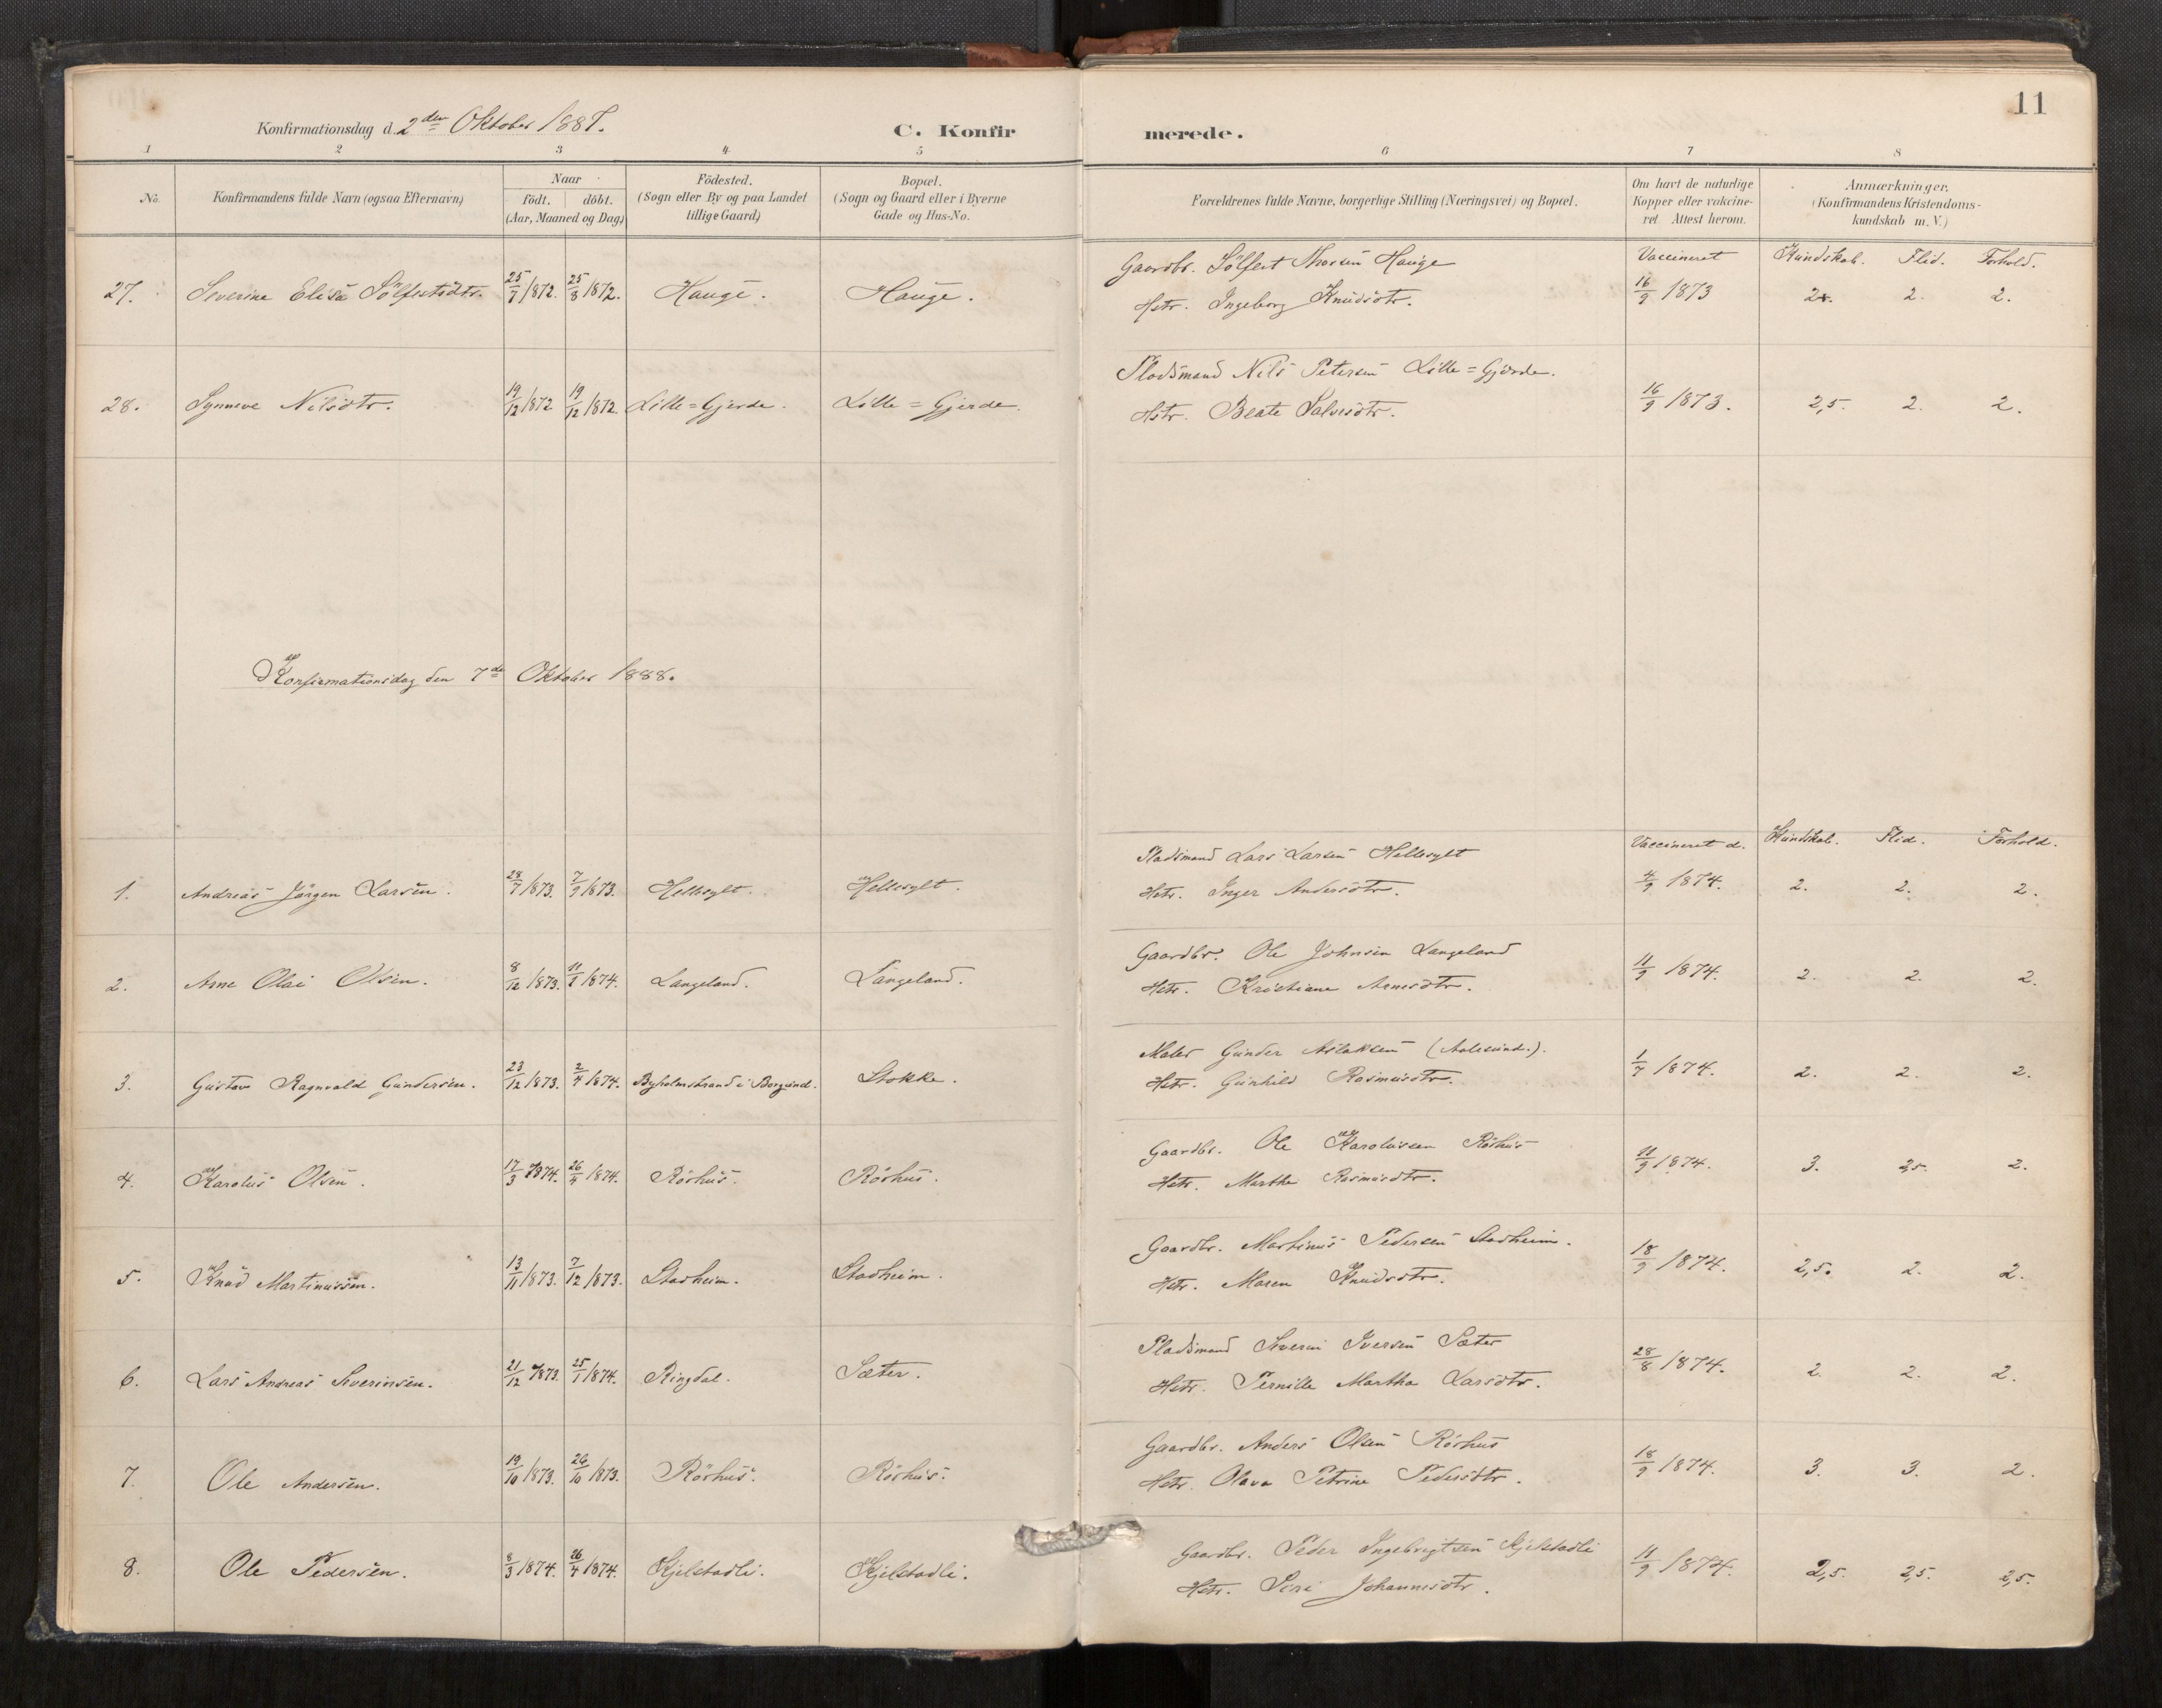 11
Konfirmationsdag d. 2den Oktober 1887. C. Konfir merede.
1 2 3 4 5 6 7 8
No. Konfirmandens fulde Navn (ogsaa Efternavn) Naar født. döbt. (Aar, Maaned og Dag) Födested. (Sogn eller By og paa Landet tillige Gaard) Bopæl. (Sogn og Gaard eller i Byerne Gade og Hus-No. Forældrenes fulde Navne, borgerlige Stilling (Næringsvei) og Bopæl. Om havt de naturlige Kopper eller vakcineret. Attest herom. Anmærkninger. (Konfirmandens Kristendomskundskab m. V.)
Gaardbr. Sölfest Hauge Vaccineret Kundskab. Flid. Forhold.
27. Severine Elisa Sölfestsdtr. 25/7 1872. 25/8 1872. Hauge. Hauge. Hstr. Ingeborg Knudsdtr. 16/9 1873 2. 2.
Pladsmand Nils Petersen Lille=Gjerde.
28. Synneve Nilsdtr. 19/12 1872 19/12 1872 Lille=Gjerde. Lille=Gjerde. Hstr. Beate 16/9 1873. 2,5. 2. 2.
Konfirmationsdag den 7de Oktober 1888.
Pladsmand Lars Larsen Hellesylt Vaccineret d. Kundskab. Flid. Forhold.
1. Andreas Jörgen Larsen. 28/7 1873. 7/9 1873. Hellesylt. Hellesylt. Hstr. Inger Andersdtr. 4/9 1874. 2. 2. 2.
Gaardbr. Ole Johnsen Langeland
2. Arne Olai Olsen. 8/12 1873. 11/2 1874. Langeland. Langeland. Hstr. Kristiane Arnesdtr. 11/9 1874. 2. 2. 2.
Maler Gunder Aslaksen (Aalesund.).
3. Gustav Ragnvald Gundersen. 23/12 1873. 2/4 1874. Byholmstrand i Borgund. Stokke. Hstr. Gunhild Rasmusdtr. 1/7 1874. 2. 2. 2.
Gaardbr. Ole Karolussen Röshus
4. Karolus Olsen. 17/3 1874. 26/4 1874. Röshus. Röshus. Hstr. Marthe Rasmusdtr. 11/9 1874. 3. 2,5. 2.
Gaardbr. Martinus Pedersen Stadheim.
5. Knud Martinussen. 13/11 1873. 7/12 1873. Stadheim. Stadheim. Hstr. Maren Knudsdtr. 18/9 1874. 2,5. 2. 2.
Pladsmand Severin Iversen Sæter
6. Lars Andreas Severinsen. 21/12 1873. 25/1 1874. Ringdal. Sæter. Hstr. Pernille Martha Larsdtr. 28/8 1874. 2. 2. 2.
Gaardbr. Anders Olsen Röshus
7. Ole Andersen. 19/10 1873. 26/10 1873. Röshus. Röshus. Hstr. Olava Petrine Pedersdtr. 18/9 1874. 3. 3. 2.
Gaardbr. Peder Ingebrigtsen Kjelstadli
8. Ole Pedersen. 8/3 1874. 26/4 1874. Kjelstadli. Kjelstadli. Hstr. Siri Johannesdtr. 11/9 1874. 2,5. 2,5. 2,5.